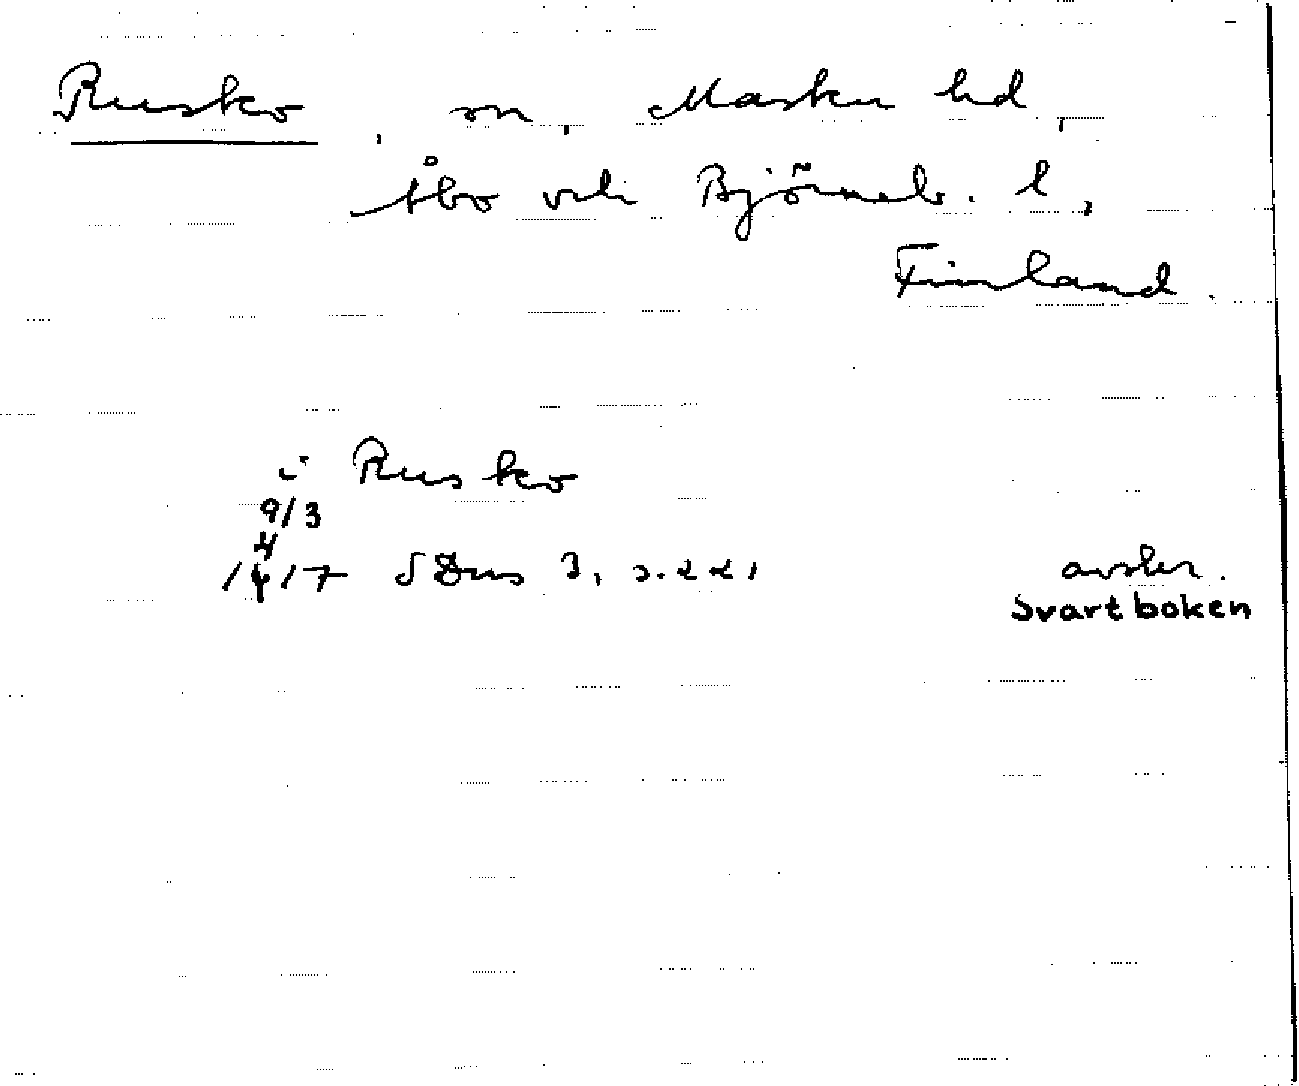 Rusko, sn, Masku hd,
Åbo och Björneb. l,
Finland.
i Rusko
9/3
4
1417 SDns 3, s. 221
avskr.
Svartboken